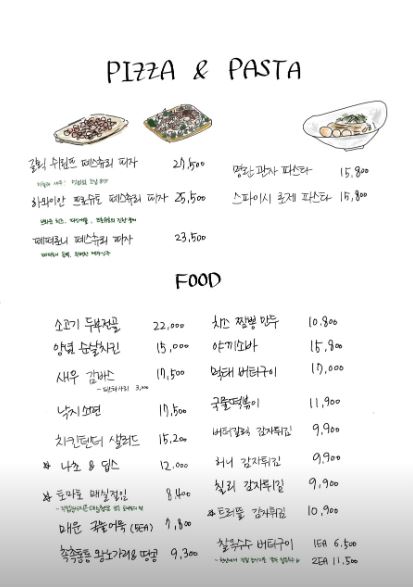 PIZZA & PASTA
갈릭 쉬림프 페스츄리 피자 27,500
하와이안 프로슈토 페스츄리 피자 25,500
페퍼로니 페스츄리 피자 23,500
명란 관자 파스타 15,800
스파이시 로제 파스타 15,800
FOOD
소고기 두부전골 22,000
양념 순살치킨 15,000
새우 감바스 17,500
3,000
낙지소면 17,500
치킨텐더 샐러드 15,200
☆ 나쵸 & 딥스 12,000
☆ 토마토 매실절임 8,400
매운 국물어묵 (5EA) 7,800
촉촉통통 왕노가리 & 땅콩 9,300
치즈 짬뽕만두 10,800
야끼소바 15,800
먹태 버터구이 17,000
국물떡볶이 11,900
버터갈릭 감자튀김 9,900
허니 감자튀김 9,900
칠리 감자튀김 9,900
☆ 트러플 감자튀김 10,900
찰옥수수 버터구이 1EA 6,500
2EA 11,500